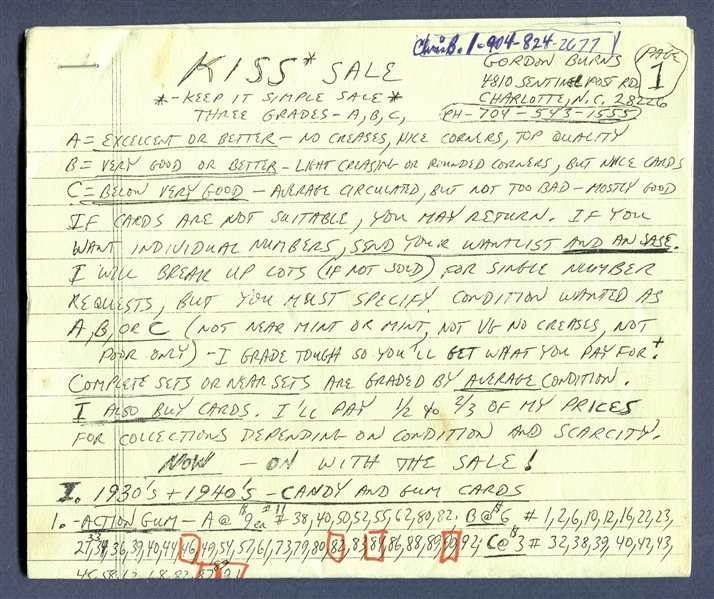 Chris B. 1-904-824-2677
KISS* SALE
GORDON BURNS
4810 SENTINEL POST RD
CHARLOTTE, N.C. 28226
PH-704-543-1555
PAGE 1
*-KEEP IT SIMPLE SALE*
THREE GRADES-A,B,C,
A = EXCELLENT OR BETTER - NO CREASES, NICE CORNERS, TOP QUALITY
B = VERY GOOD OR BETTER - LIGHT CREASING OR ROUNDED CORNERS, BUT NICE CARDS
C = BELOW VERY GOOD - AVERAGE CIRCULATED, BUT NOT TOO BAD - MOSTLY GOOD
IF CARDS ARE NOT SUITABLE, YOU MAY RETURN. IF YOU
WANT INDIVIDUAL NUMBERS, SEND YOUR WANTLIST AND AN SASE.
I WILL BREAK UP LOTS (IF NOT SOLD) FOR SINGLE NUMBER
REQUESTS, BUT YOU MUST SPECIFY CONDITION WANTED AS
A, B, OR C (NOT NEAR MINT OR MINT, NOT VG NO CREASES, NOT
POOR ONLY) - I GRADE TOUGH SO YOU'LL GET WHAT YOU PAY FOR!
COMPLETE SETS OR NEAR SETS ARE GRADED BY AVERAGE CONDITION.
I ALSO BUY CARDS. I'LL PAY 1/2 to 2/3 OF MY PRICES
FOR COLLECTIONS DEPENDING ON CONDITION AND SCARCITY.
NOW - ON WITH THE SALE!
I. 1930's + 1940's - CANDY AND GUM CARDS
1. - ACTION GUM - A @ $9 ea # 38,40,50,52,55,62,80,82. B @ $6 # 1,2,6,10,12,16,22,23,
27,33,34,36,39,40,44,46,49,54,57,61,73,79,80,82,83,84,86,88,89,90,92; C @ $3 # 32,38,39,40,42,43,